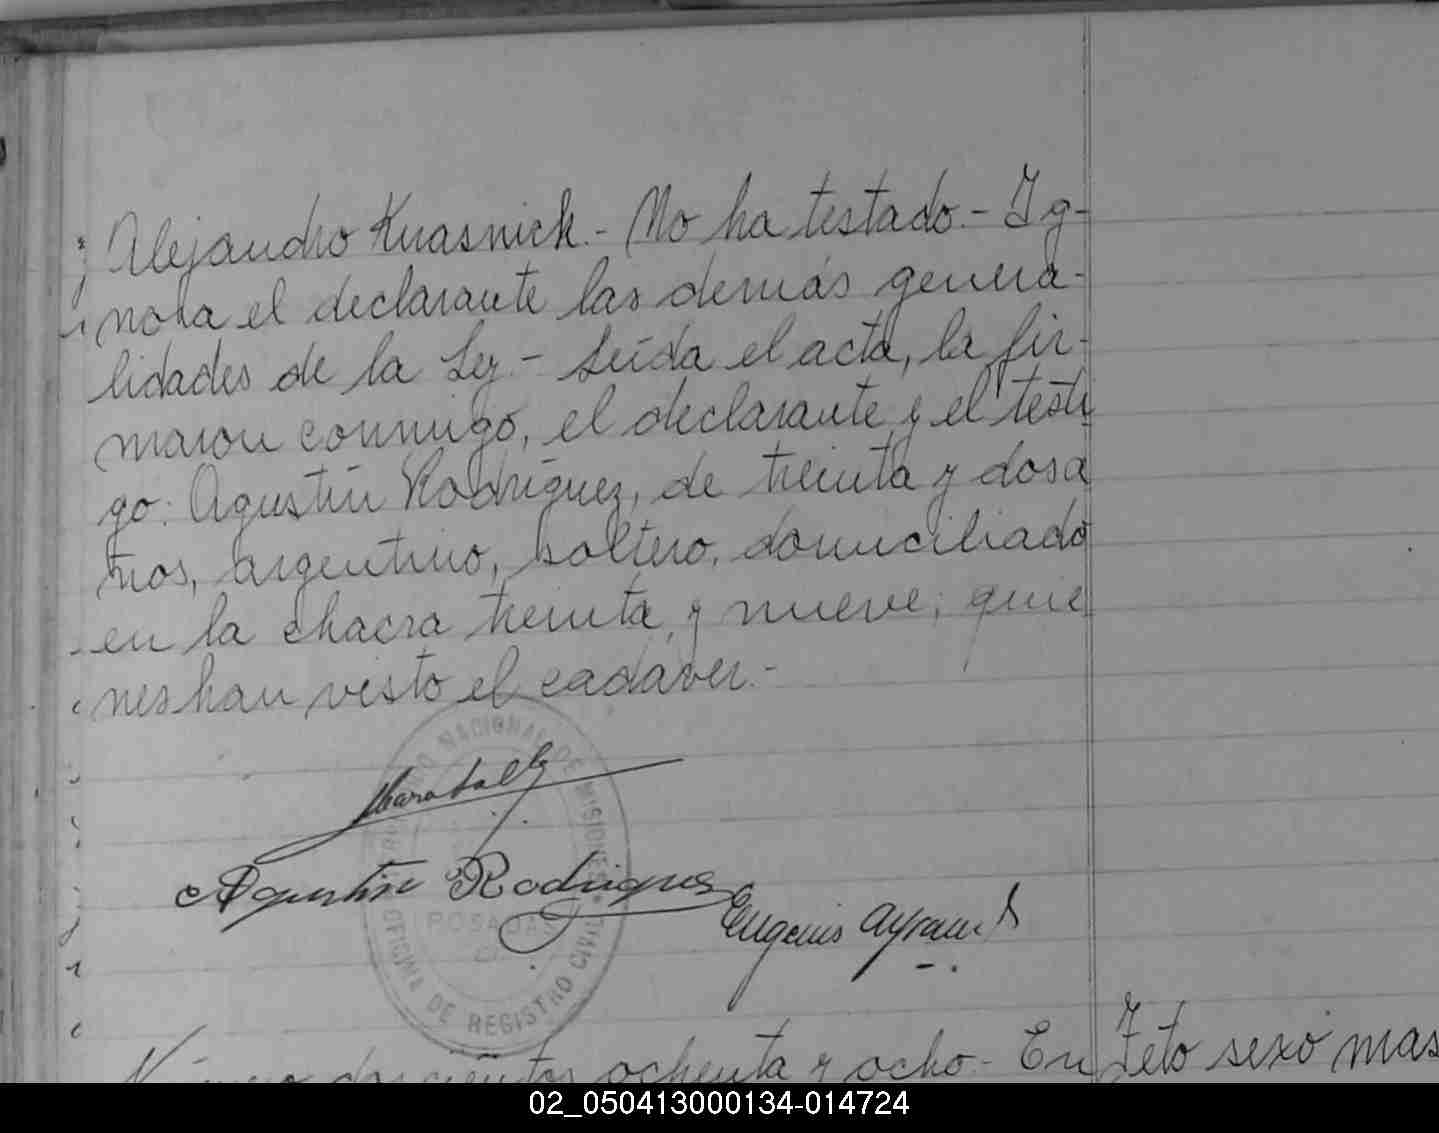 Alejandro Kuasnick.- No ha testado.- Ig-
nora el declarante las demás genera-
lidades de la Ley.- Leída el acta, la fir-
maron conmigo, el declarante y el testi
go: Agustín Rodríguez, de treinta y dos a
ños, argentino, soltero, domiciliado
en la chacra treinta y nueve; quie
nes han visto el cadaver.-
NACIONAL DE MISIONES
POSADAS
OFICINA DE REGISTRO CIVIL
Agustin Rodriguez
Eugenio
Número doscientos ochenta y ocho.- En
Feto sexo mas
02_050413000134-014724